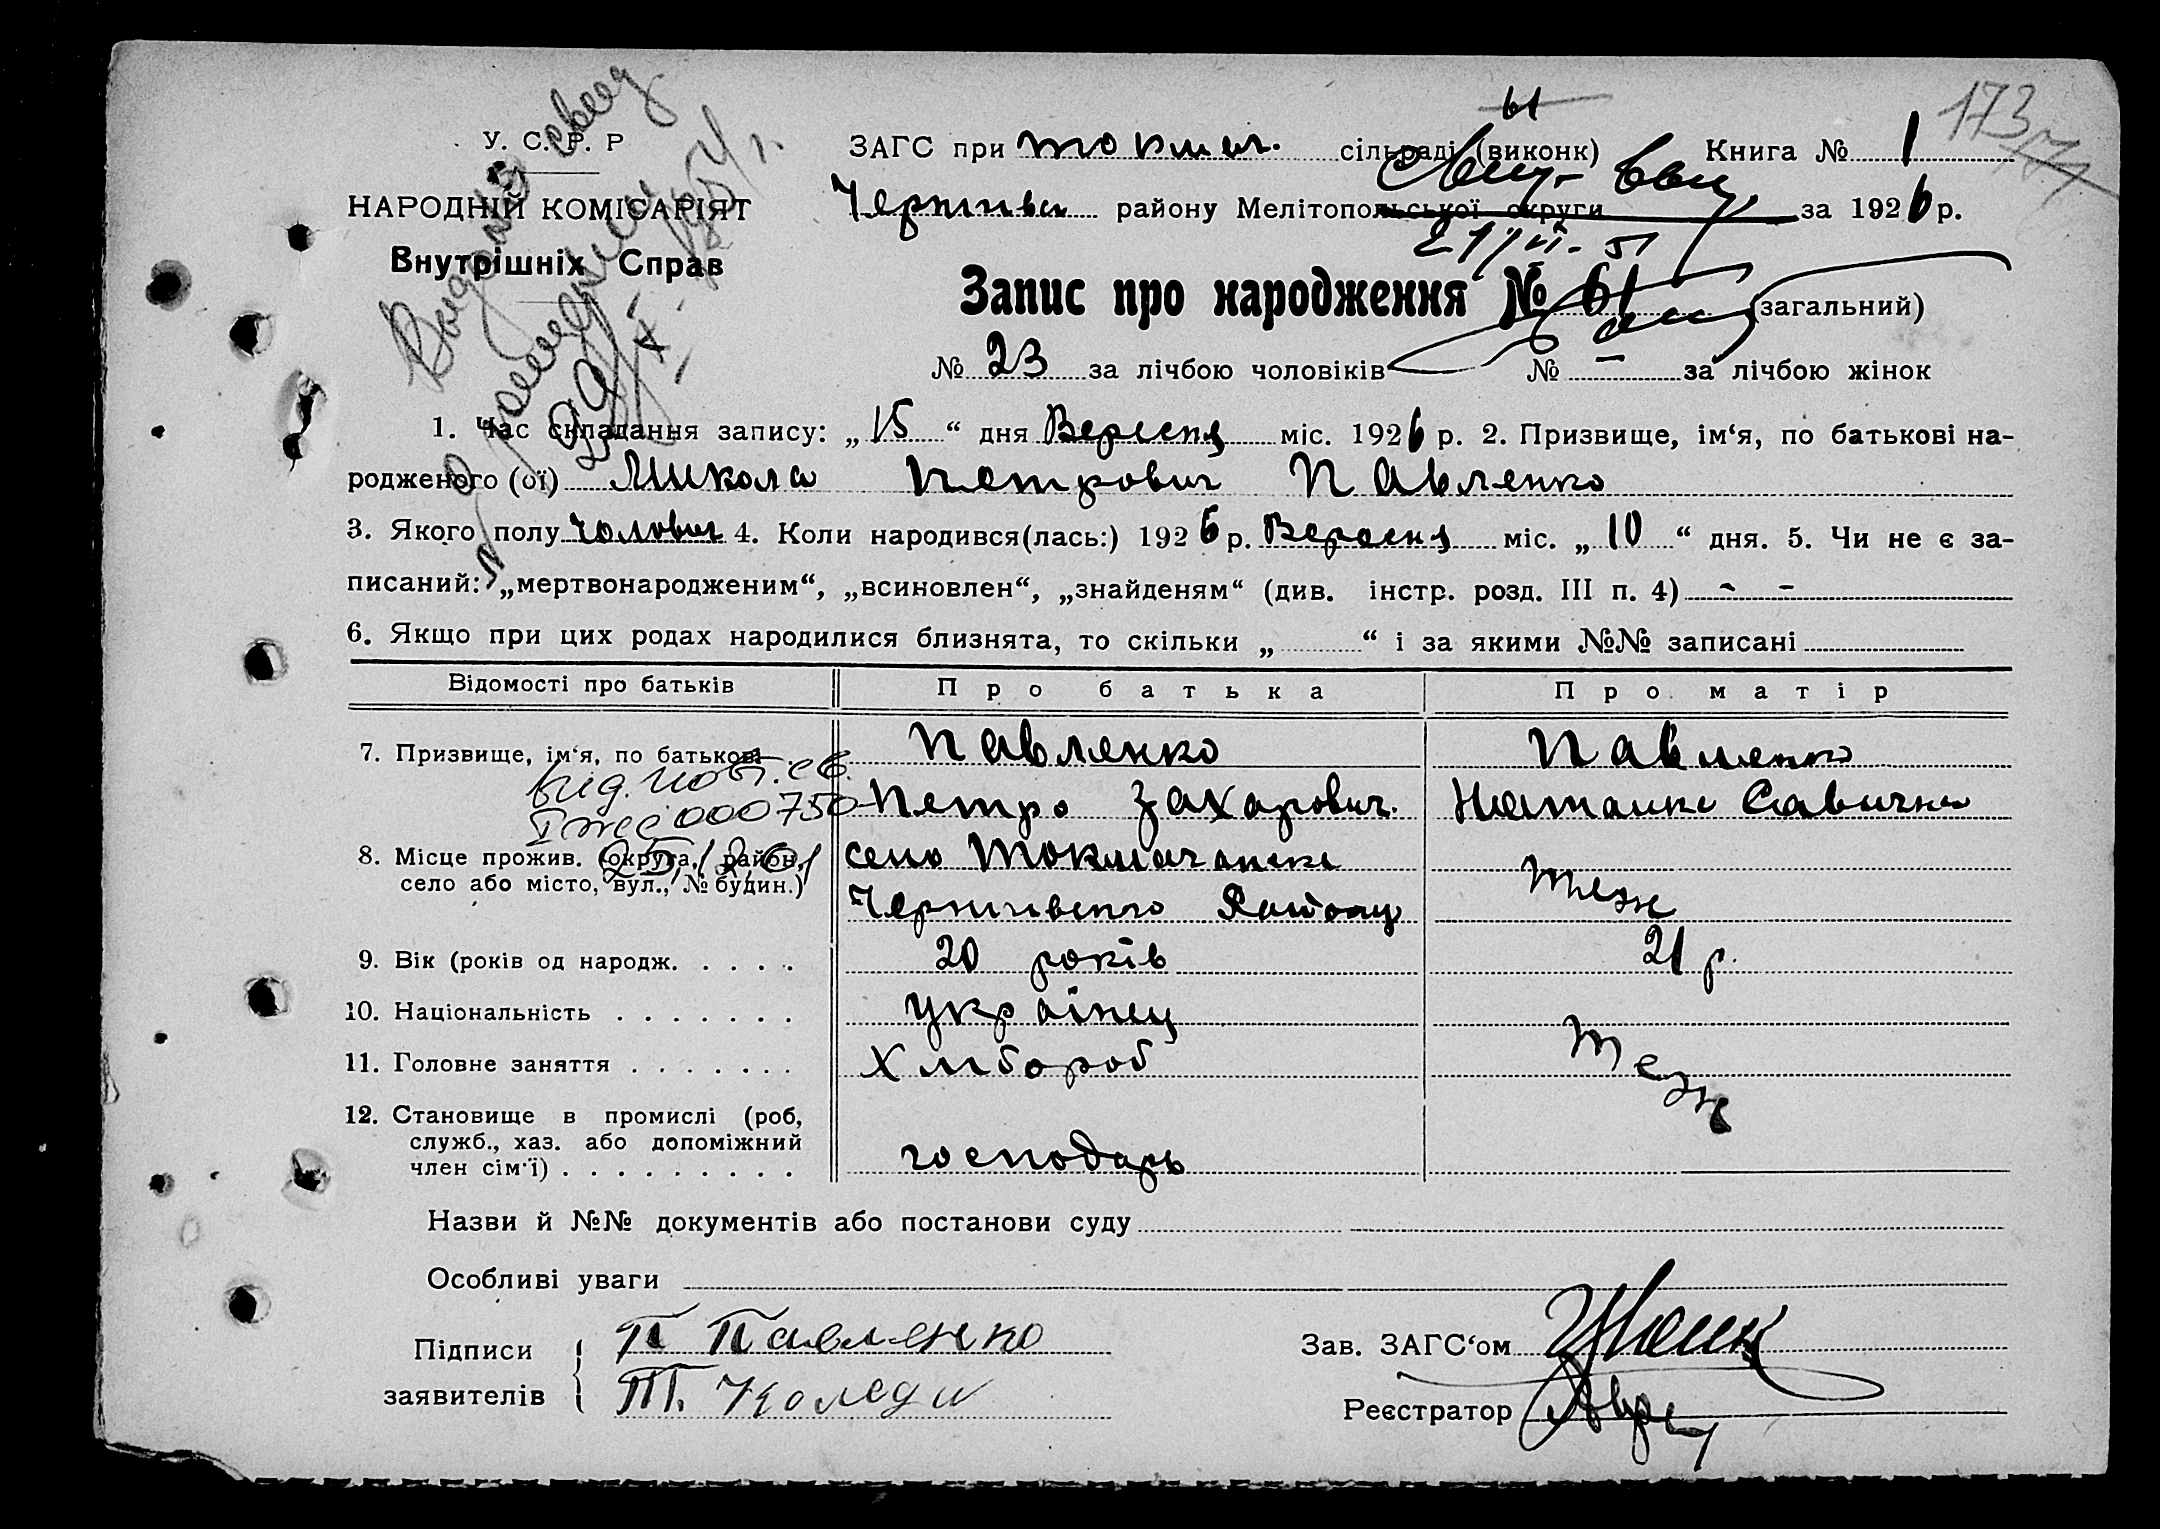 У. С. Р. Р
НАРОДНІЙ КОМІСАРІЯТ
Внутрішніх Справ
61
ЗАГС при Токмач. сільраді (виконк) Книга № 1
173
171
Чернигівськ району Мелітопольської округи за 1926 р.
21/VII-51
Запис про народження № 61 (загальний)
№ 23 за лічбою чоловіків № — за лічбою жінок
1. Час складання запису: „15“ дня Вересня міс. 1926 р. 2. Призвище, ім‘я, по батькові на-
родженого (ої) Микола Петрович Павленко
3. Якого полу чолович 4. Коли народився(лась:) 1926 р. Вересня міс. „10“ дня. 5. Чи не є за-
писаний: „мертвонародженим“, „всиновлен“, „знайденям“ (див. інстр. розд. III п. 4) - -
6. Якщо при цих родах народилися близнята, то скільки „ “ і за якими №№ записані
Відомості про батьків Про батька Про матір
7. Призвище, ім‘я, по батькові Павленко Павленко
Петро Захарович. Наталка Савична
выд. повт. св.
000750
25/12,61
8. Місце прожив. (округа, район, село Токмачанка
село або місто, вул., № будин.) Чернигівсько Району теж
9. Вік (років од народж. . . . . . 20 років 21 р.
10. Національність . . . . . . . українец
11. Головне заняття . . . . . . . Хлібороб теж
12. Становище в промислі (роб,
служб., хаз. або допоміжний
член сім‘ї) . . . . . . . . . господарь
Назви й №№ документів або постанови суду
Особливі уваги
Підписи П Павленко Зав. ЗАГС‘ом
заявителів Реєстратор